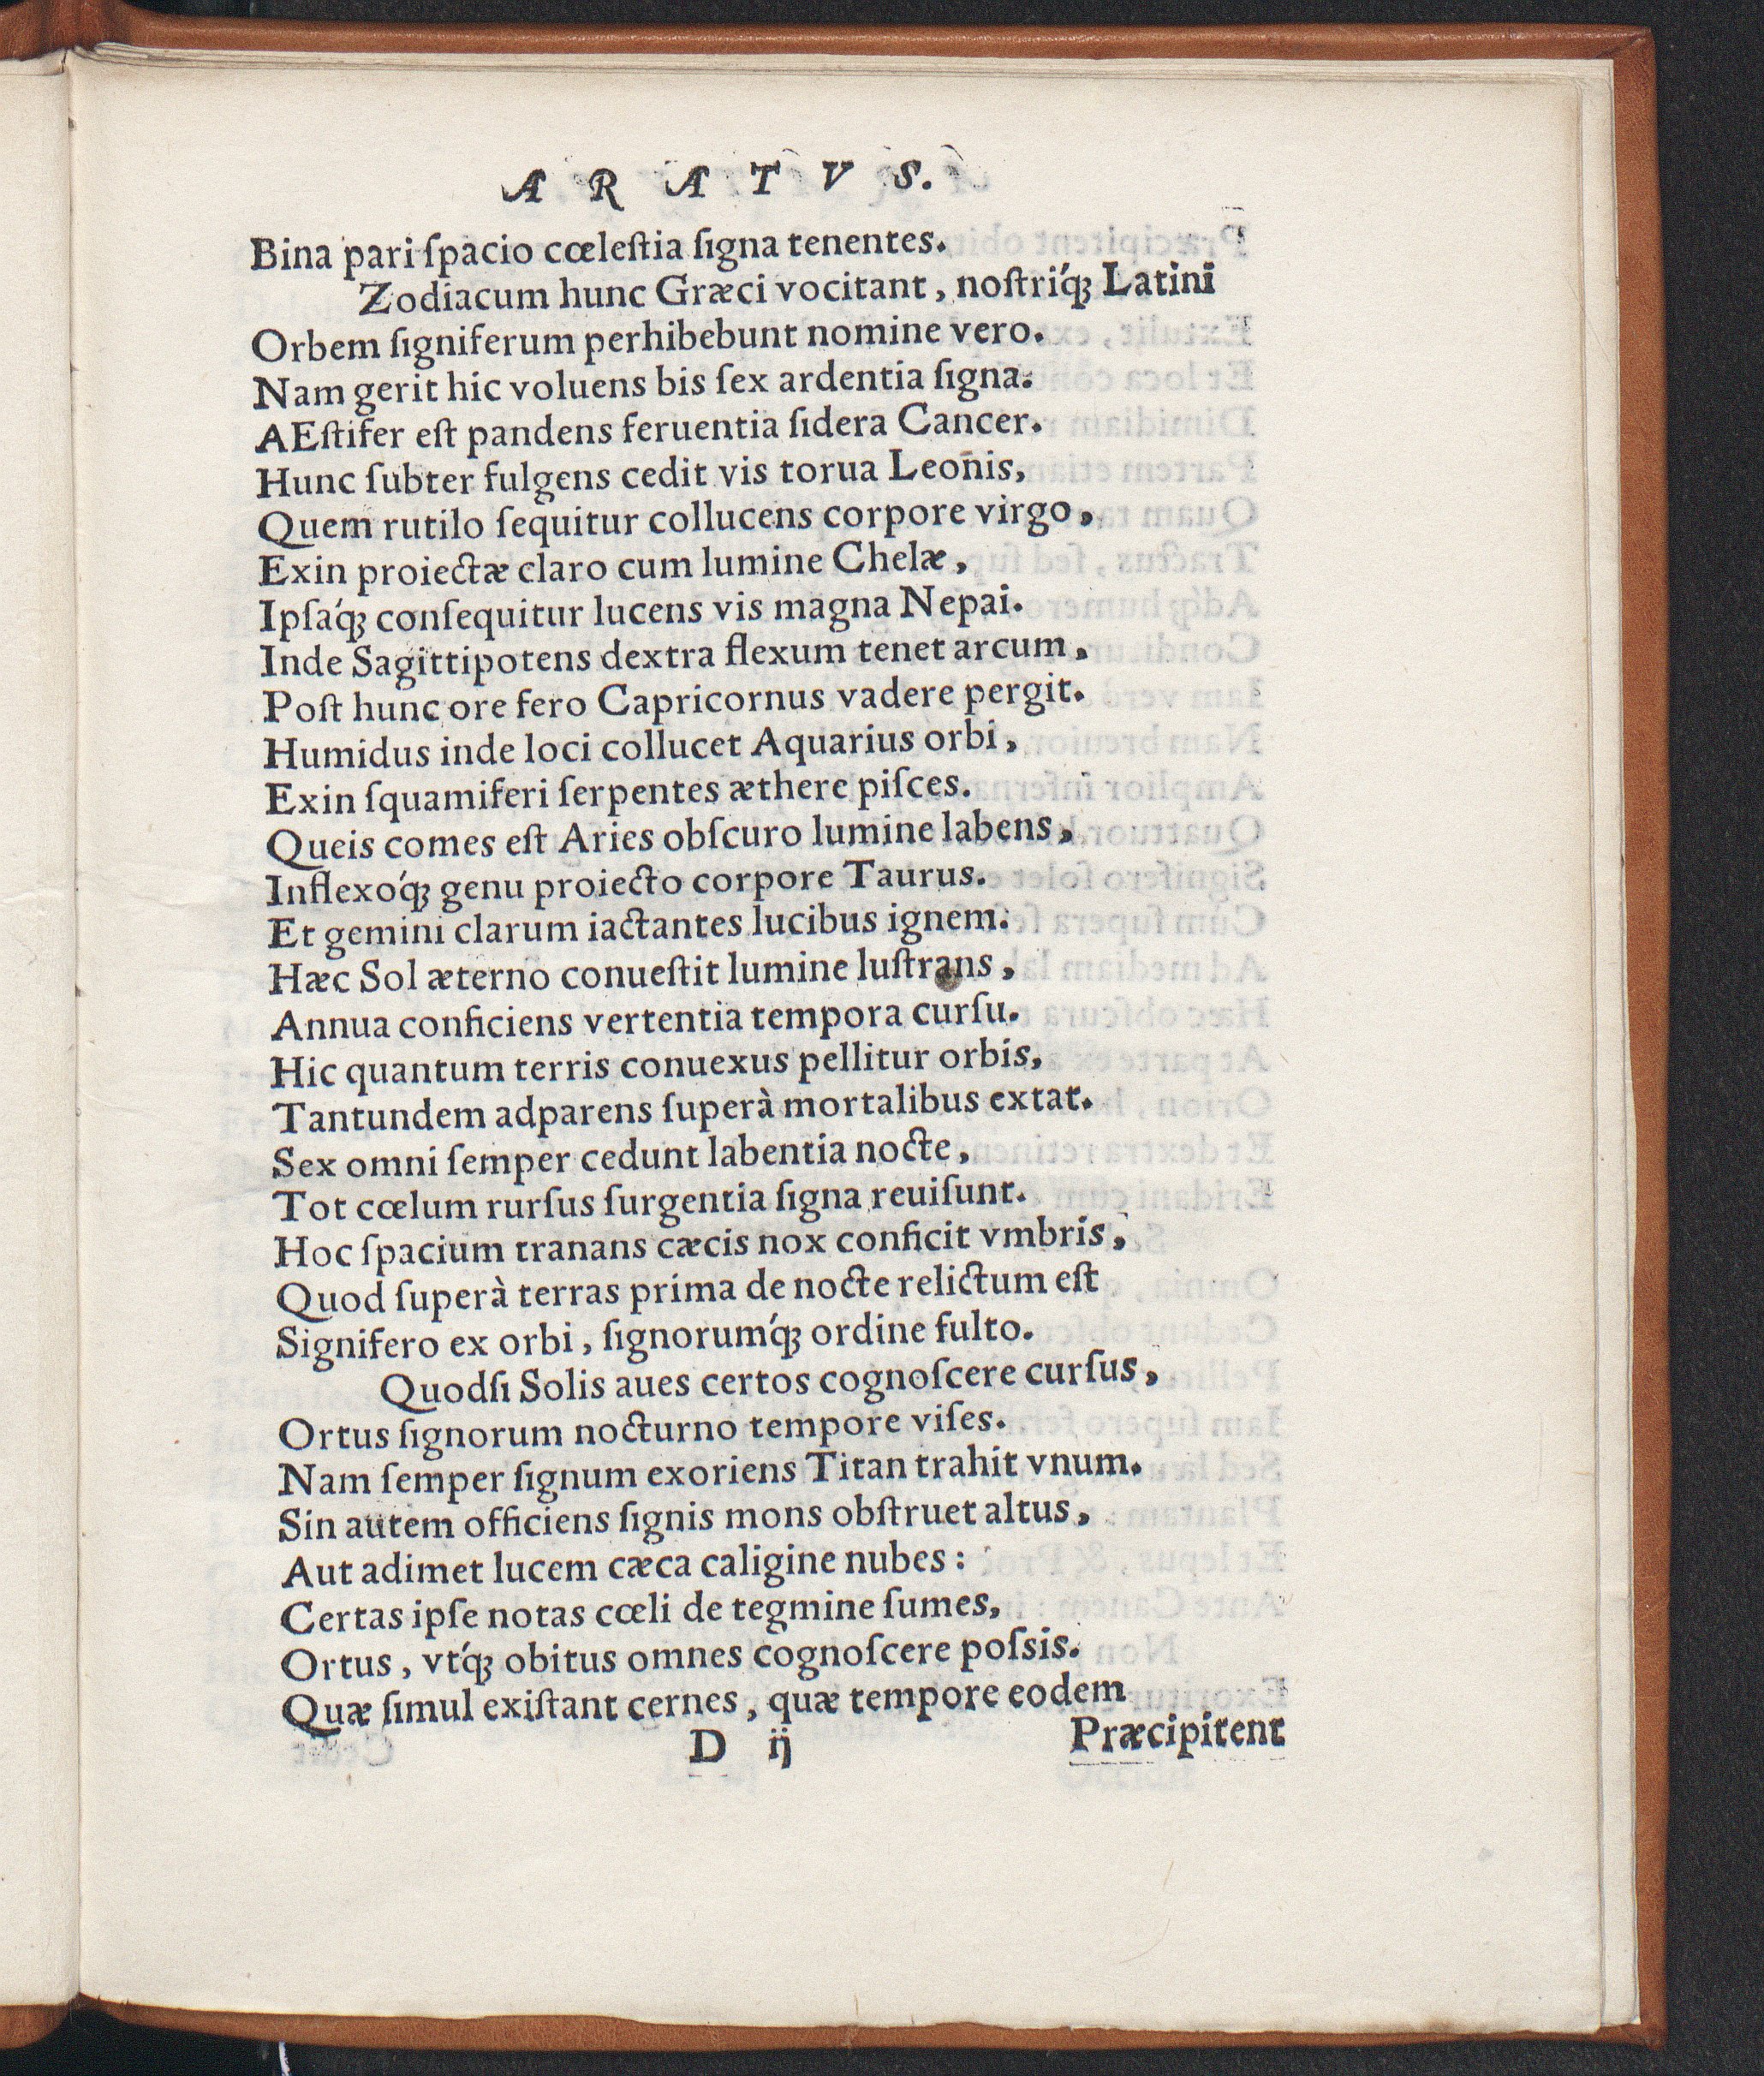 ARATVS.
Bina pari ſpacio cœleſtia ſigna tenentes.
Zodiacum hunc Græci vocitant, noſtríq́; Latini
Orbem ſigniferum perhibebunt nomine vero.
Nam gerit hic voluens bis ſex ardentia ſigna.
AEſtifer eſt pandens feruentia ſidera Cancer.
Hunc ſubter fulgens cedit vis torua Leonis,
Quem rutilo ſequitur collucens corpore virgo,
Exin proiectæ claro cum lumine Chelæ,
Ipſaq́; conſequitur lucens vis magna Nepai.
Inde Sagittipotens dextra flexum tenet arcum,
Poſt hunc ore fero Capricornus vadere pergit.
Humidus inde loci collucet Aquarius orbi,
Exin ſquamiferi ſerpentes æthere piſces.
Queis comes eſt Aries obſcuro lumine labens,
Inflexoq́; genu proiecto corpore Taurus.
Et gemini clarum iactantes lucibus ignem.
Hæc Sol æterno conueſtit lumine luſtrans,
Annua conficiens vertentia tempora curſu.
Hic quantum terris conuexus pellitur orbis,
Tantundem adparens ſuperà mortalibus extat.
Sex omni ſemper cedunt labentia nocte,
Tot cœlum rurſus ſurgentia ſigna reuiſunt.
Hoc ſpacium tranans cæcis nox conficit vmbris,
Quod ſuperà terras prima de nocte relictum eſt
Signifero ex orbi, ſignorumq́; ordine fulto.
Quodſi Solis aues certos cognoſcere curſus,
Ortus ſignorum nocturno tempore viſes.
Nam ſemper ſignum exoriens Titan trahit vnum.
Sin autem officiens ſignis mons obſtruet altus,
Aut adimet lucem cæca caligine nubes:
Certas ipſe notas cœli de tegmine ſumes,
Ortus, vtq́; obitus omnes cognoſcere poſsis.
Quæ ſimul exiſtant cernes, quæ tempore eodem
D ij Præcipitent